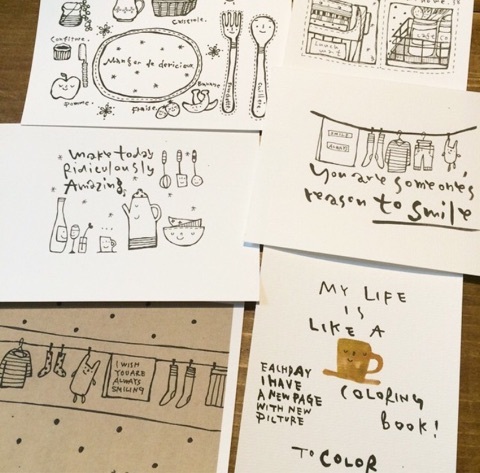 Confiture.
Casserole.
Manger de dericieux
pomme.
fraise.
Banane
cuillere
Lunch
Cafe
make today
Ridiculously
Amazing.
SMILE
ALWAYS
You are someone's
reason to smile
I WISH
YOU ARE
ALWAYS
SMILING
MY LIFE
IS
LIKE A
COLORING
BOOK!
EACH DAY
I HAVE
A NEW PAGE
WITH NEW
PICTURE
TO COLOR